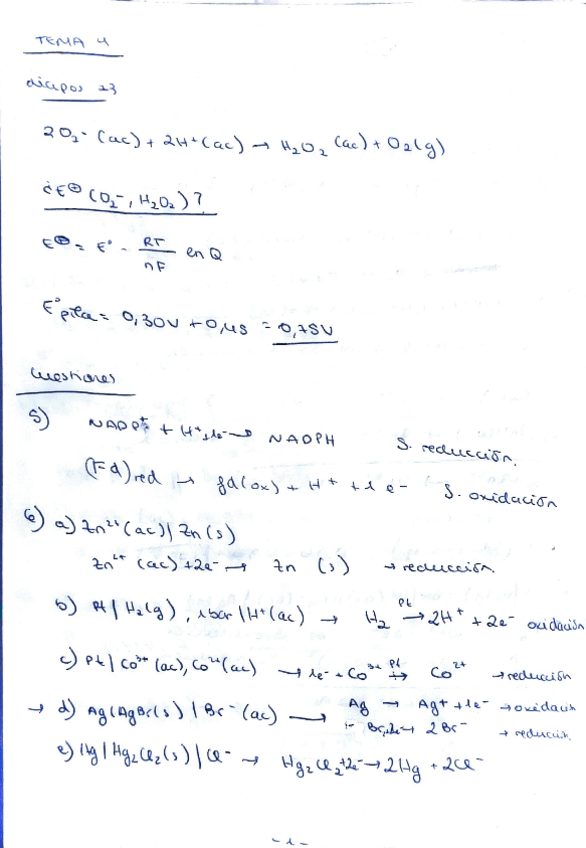 TEMA 4
diapos 23
2O₂⁻ (ac) + 2H⁺ (ac) → H₂O₂ (ac) + O₂(g)
¿E⊖ (O₂⁻, H₂O₂)?
E⊖ = E° - RT/nF en Q
E°pila = 0,30V + 0,45 = 0,75V
Cuestiones
5) NADP⁺ + H⁺ + 1e⁻ → NADPH S. reducción.
(Fd)red → fd(ox) + H⁺ + 1e⁻ S. oxidación
6) a) Zn²⁺(ac) | Zn(s)
Zn²⁺ (ac) + 2e⁻ → Zn (s) → reducción.
b) Pt | H₂(g), 1bar | H⁺(ac) → H₂ Pt→ 2H⁺ + 2e⁻ oxidación
c) Pt | Co³⁺ (ac), Co²⁺(ac) → 1e⁻ + Co³⁺ Pt→ Co²⁺ → reducción
→ d) Ag | AgBr(s) | Br⁻ (ac) → Ag → Ag⁺ + 1e⁻ → oxidación
Br₂ 2e⁻ → 2Br⁻ → reducción.
e) Hg | Hg₂Cl₂(s) | Cl⁻ → Hg₂Cl₂ + 2e⁻ → 2Hg + 2Cl⁻
- 1 -